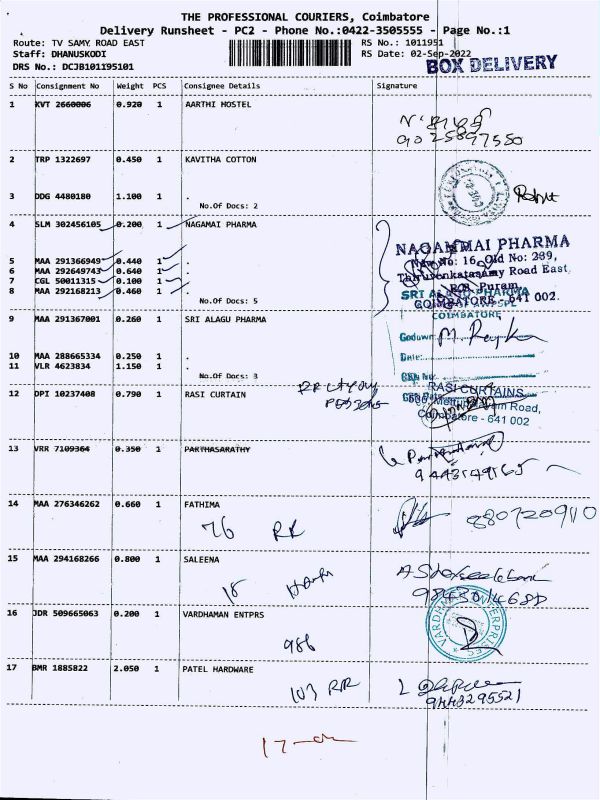 THE PROFESSIONAL COURIERS, Coimbatore
Delivery Runsheet - PC2 - Phone No.:0422-3505555 - Page No.:1
Route: TV SAMY ROAD EAST RS No.: 1011951
Staff: DHANUSKODI RS Date: 02-Sep-2022
DRS No.: DCJB101195101 BOX DELIVERY
S No Consignment No Weight PCS Consignee Details Signature
1 KVT 2660006 0.920 1 AARTHI HOSTEL
9025897550
2 TRP 1322697 0.450 1 KAVITHA COTTON
3 DDG 4480180 1.100 1 .
No.Of Docs: 2
4 SLM 302456105 0.200 1 NAGAMAI PHARMA
NAGAMMAI PHARMA
New No: 16, Old No: 239,
Thiruvenkatasamy Road East,
R.S. Puram,
COIMBATORE - 641 002.
5 MAA 291366949 0.440 1 .
6 MAA 292649743 0.640 1 .
7 CGL 50011315 0.100 1 .
8 MAA 292168213 0.460 1 .
No.Of Docs: 5
SRI ALAGU PHARMA
COIMBATORE
9 MAA 291367001 0.260 1 SRI ALAGU PHARMA
Godown
Date:
10 MAA 288665334 0.250 1 .
11 VLR 4623834 1.150 1 .
No.Of Docs: 3
12 DPI 10237408 0.790 1 RASI CURTAIN
RASI CURTAINS
Road,
Coimbatore - 641 002
13 VRR 7109364 0.350 1 PARTHASARATHY
14 MAA 276346262 0.660 1 FATHIMA
76 RR 8807209110
15 MAA 294168266 0.800 1 SALEENA
18
16 JDR 509665063 0.200 1 VARDHAMAN ENTPRS
986
VARDHMAN ENTERPRISES
17 BMR 1885822 2.050 1 PATEL HARDWARE
103 RR
9443295521